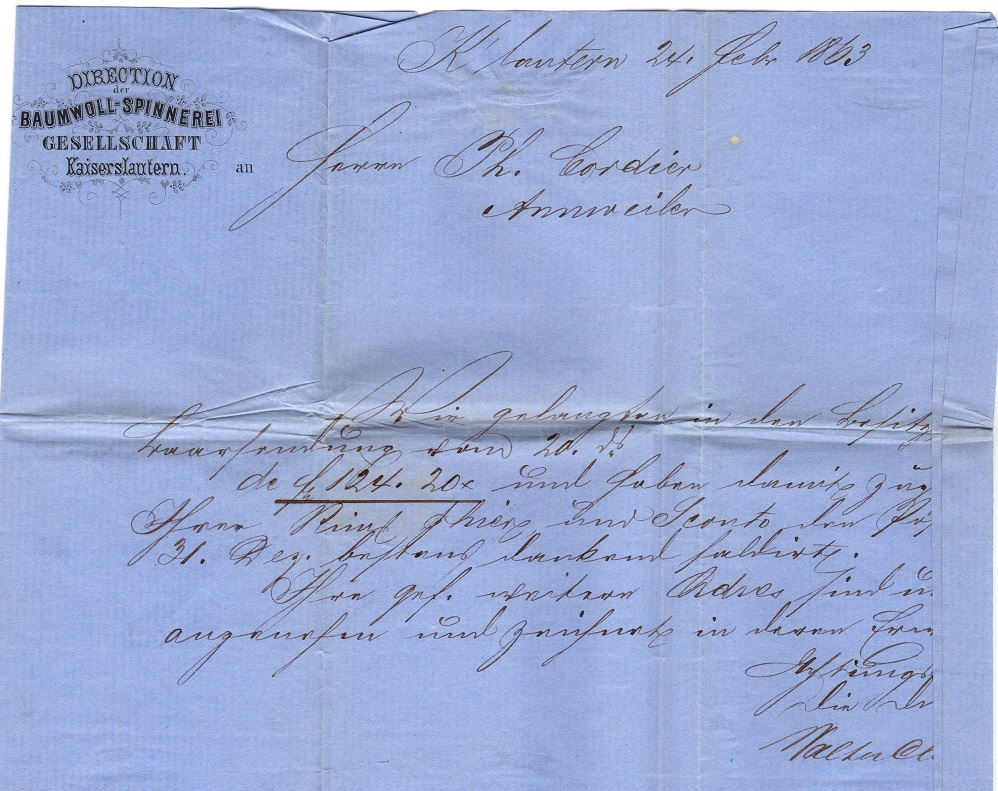 DIRECTION
der
BAUMWOLL-SPINNEREI
GESELLSCHAFT
Kaiserslautern.
K'lautern 24. Febr 1863
an
Herrn Ph. Cordier
Annweiler
Wir gelangten in den Besitz
Baarsendung vom 20. ds
de f 124. 20x und haben damit
Ihrer und Sconto den
31. Dez. bestens dankend saldirt.
Ihre gef. weitere Adres sind
angenehm und zeichnet in deren
Achtungs
Die